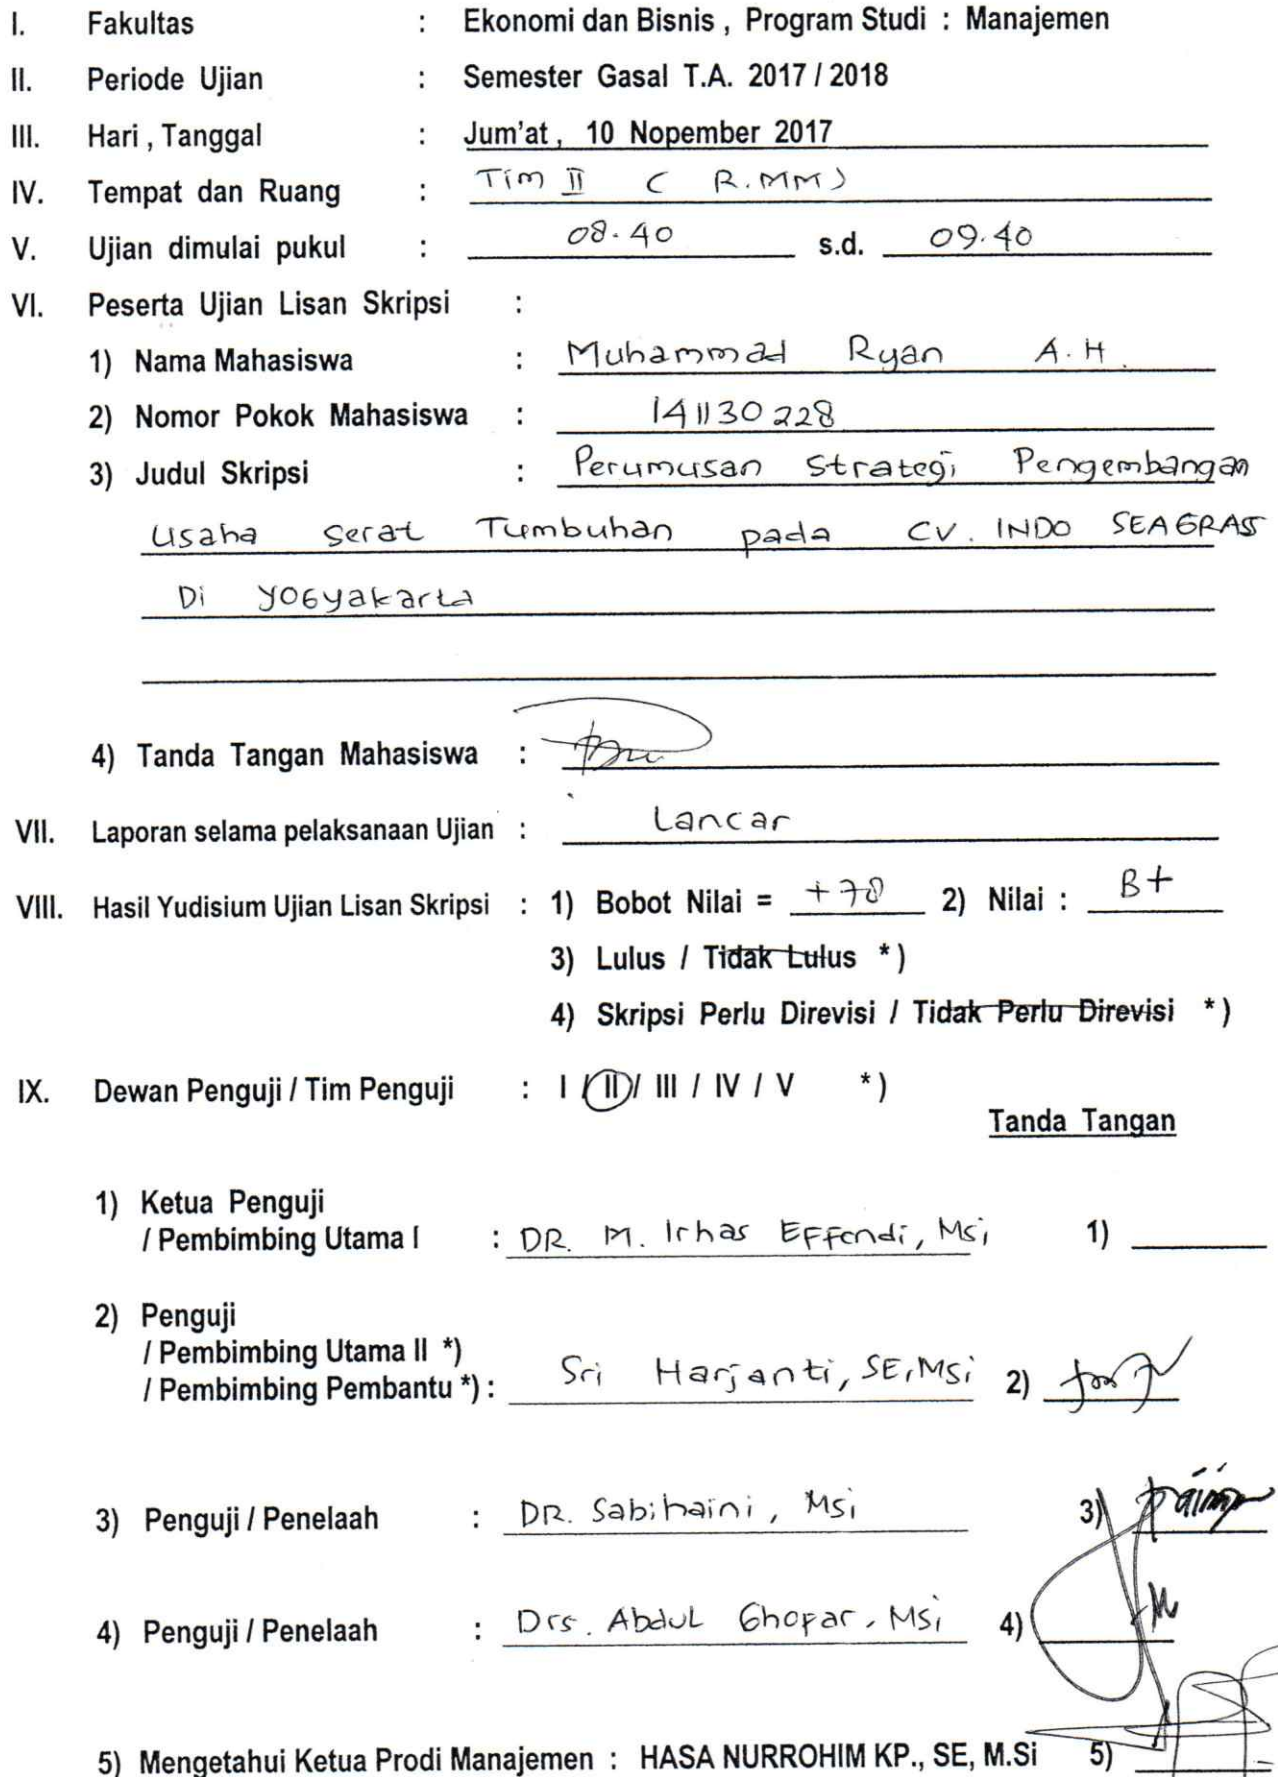 I. Fakultas : Ekonomi dan Bisnis , Program Studi : Manajemen
II. Periode Ujian : Semester Gasal T.A. 2017 / 2018
III. Hari , Tanggal : Jum'at , 10 Nopember 2017
IV. Tempat dan Ruang : Tim II ( R.MM)
V. Ujian dimulai pukul : 08.40 s.d. 09.40
VI. Peserta Ujian Lisan Skripsi :
1) Nama Mahasiswa : Muhammad Ryan A.H.
2) Nomor Pokok Mahasiswa : 141130228
3) Judul Skripsi : Perumusan Strategi Pengembangan
Usaha Serat Tumbuhan pada CV. INDO SEAGRASS
Di YOGyakarta
4) Tanda Tangan Mahasiswa :
VII. Laporan selama pelaksanaan Ujian : Lancar
VIII. Hasil Yudisium Ujian Lisan Skripsi : 1) Bobot Nilai = +78 2) Nilai : B+
3) Lulus / Tidak Lulus *)
4) Skripsi Perlu Direvisi / Tidak Perlu Direvisi *)
IX. Dewan Penguji / Tim Penguji : I / II / III / IV / V *)
Tanda Tangan
1) Ketua Penguji
/ Pembimbing Utama I : DR. M. Irhas Effendi, Msi 1)
2) Penguji
/ Pembimbing Utama II *)
/ Pembimbing Pembantu *) : Sri Harjanti, SE, Msi 2)
3) Penguji / Penelaah : DR. Sabihaini, Msi 3)
4) Penguji / Penelaah : Drs. Abdul Ghofar, Msi 4)
5) Mengetahui Ketua Prodi Manajemen : HASA NURROHIM KP., SE, M.Si 5)